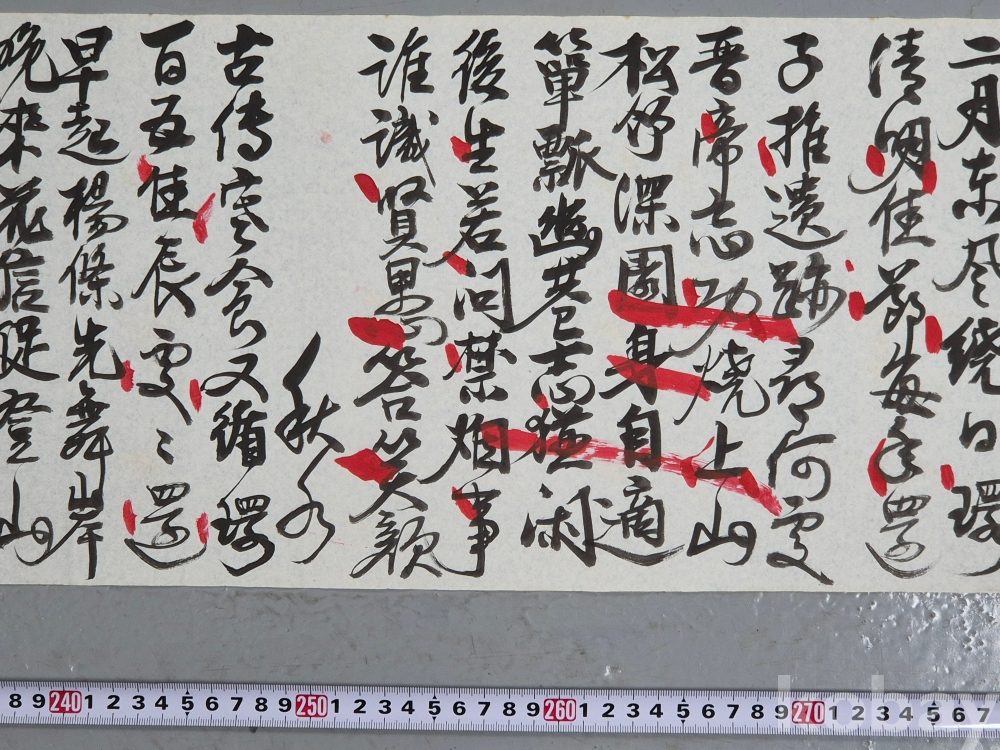 二月东风绕日環
清明佳節每年還
子推遺跡尋何處
晋帝忘功燒上山
松竹深園身自適
簞瓢幽巷志猶闲
後生若问禁烟事
誰識賢愚答笑顔
秋水
古传寒食又循環
百五佳辰處々還
早起楊條先舞岸
晚來花信促登山
8 9 240 1 2 3 4 5 6 7 8 9 250 1 2 3 4 5 6 7 8 9 260 1 2 3 4 5 6 7 8 9 270 1 2 3 4 5 6 7
kobay